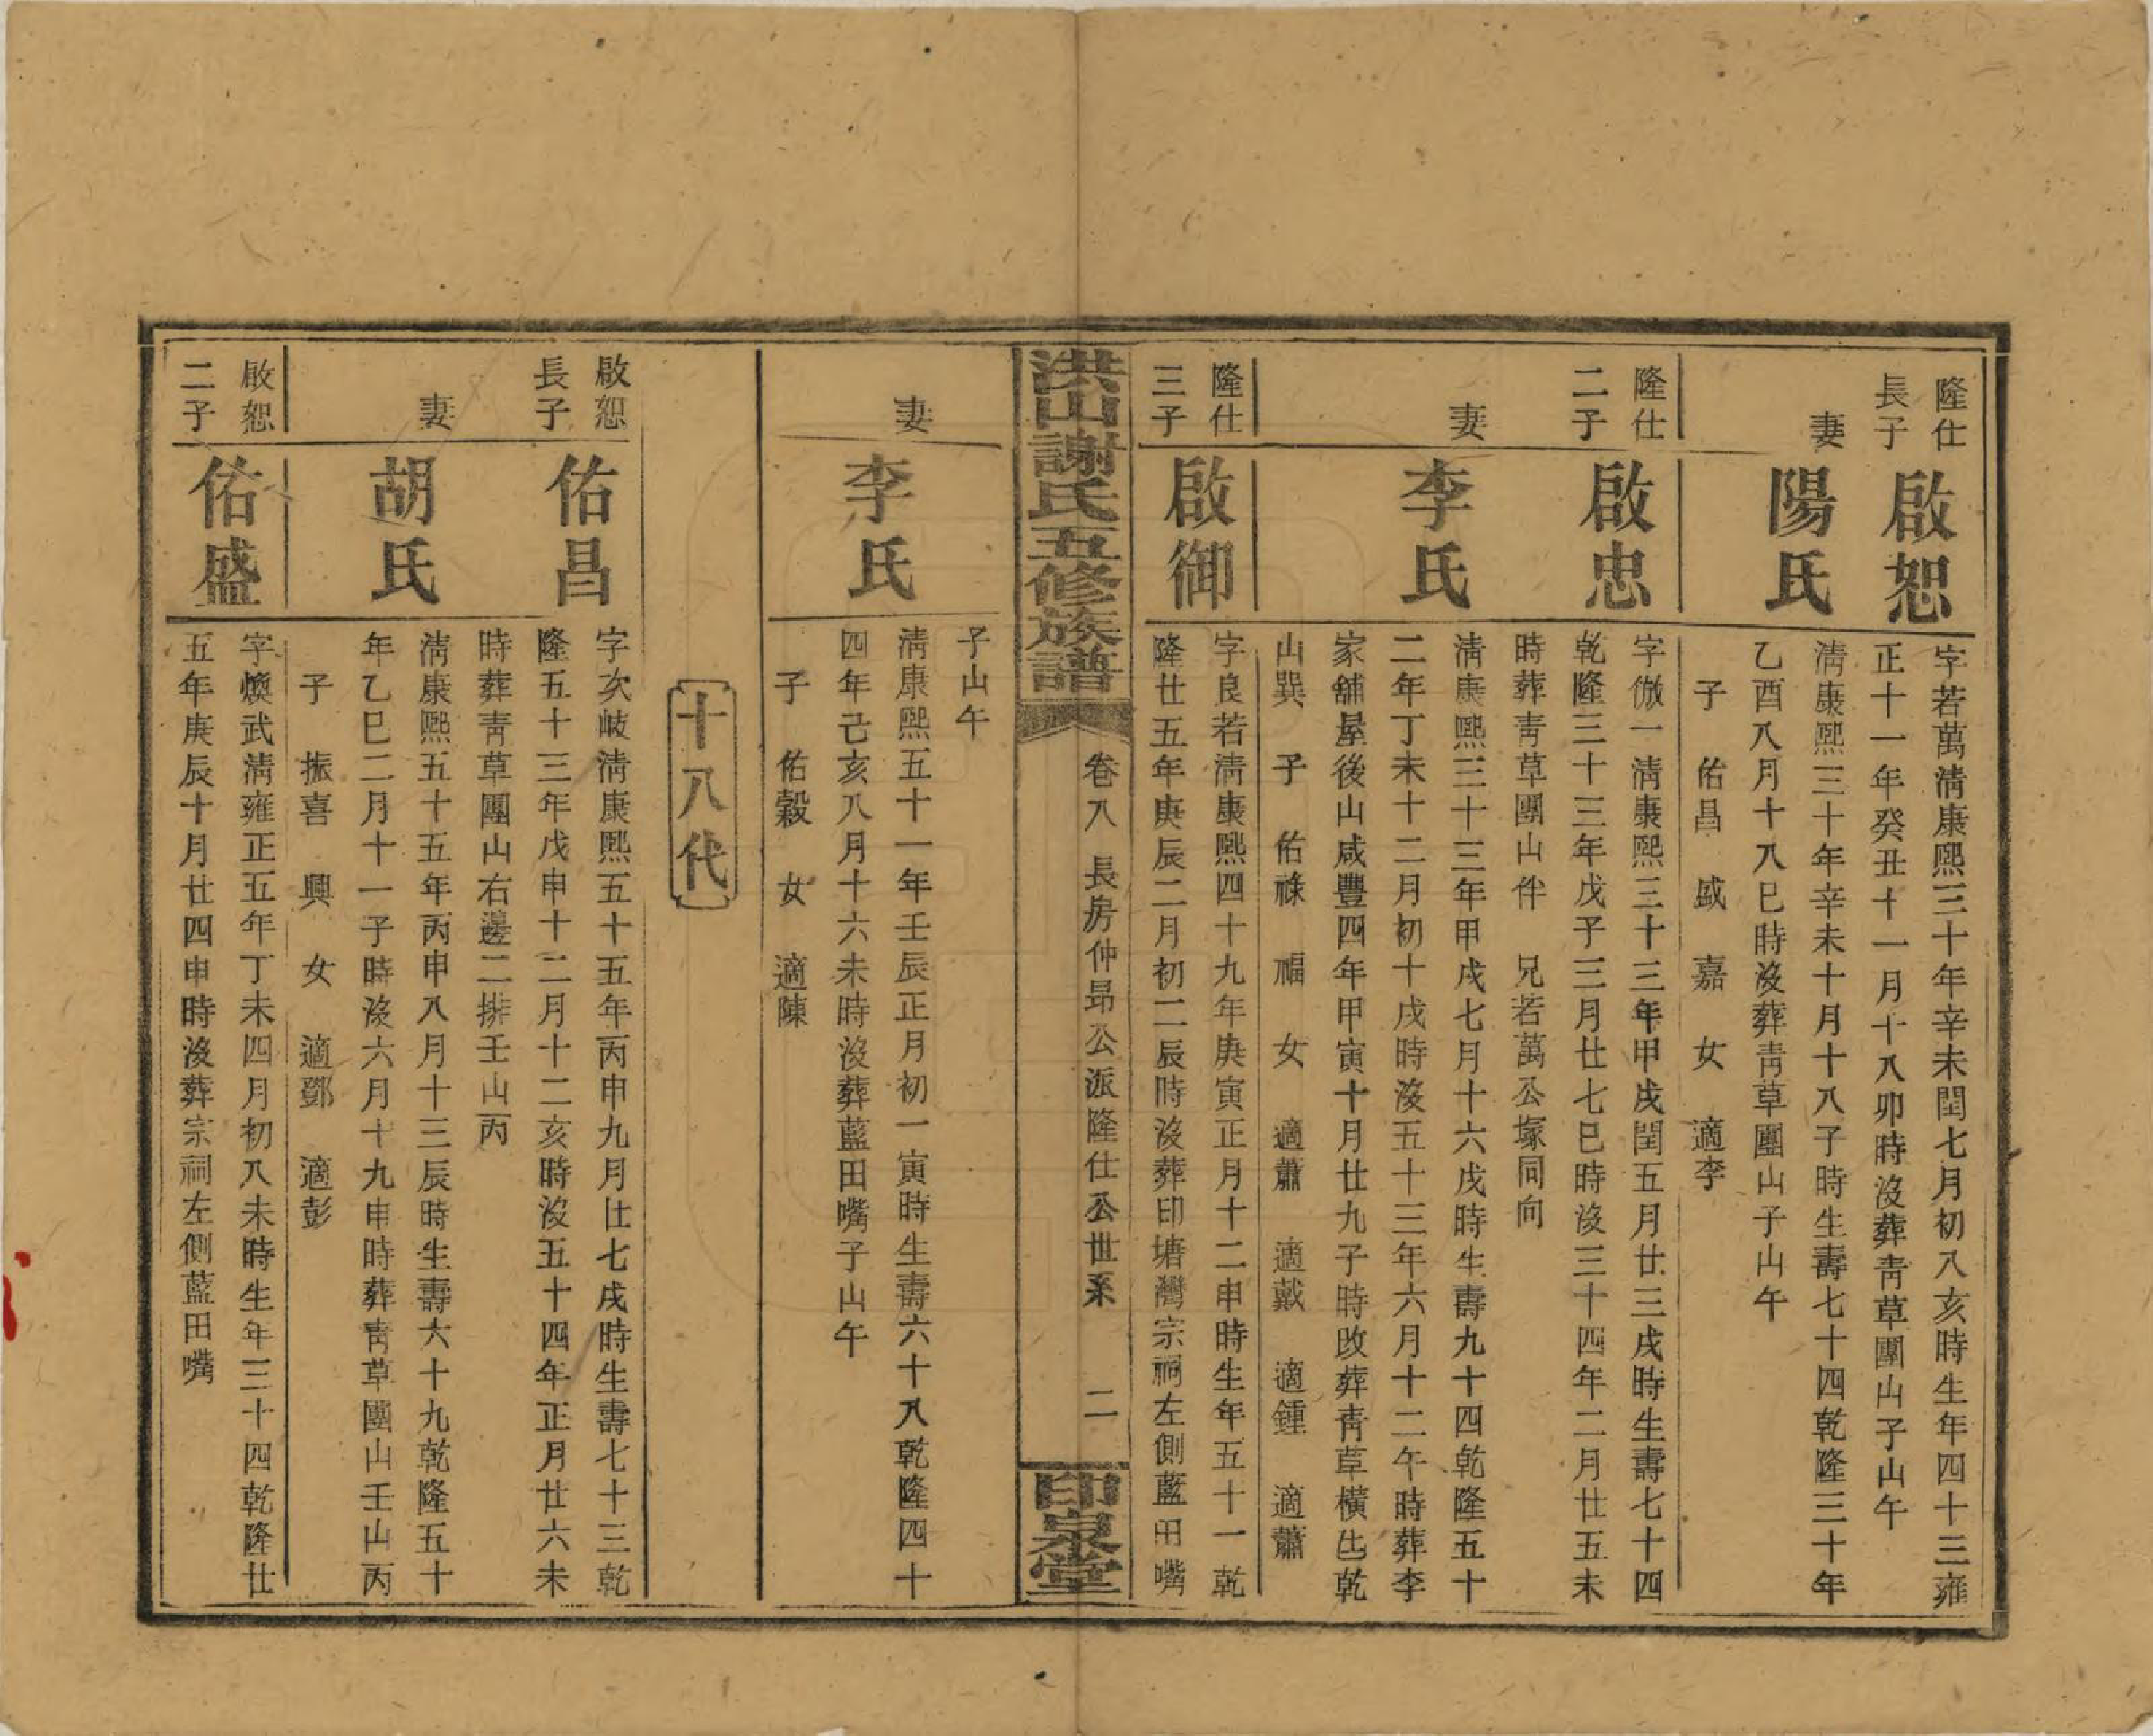 隆仕
長子
啟恕
字若萬淸康熙三十年辛未閏七月初八亥時生年四十三雍
正十一年癸丑十一月十八卯時沒葬靑草團山子山午
妻
陽氏
淸康熙三十年辛未十月十八子時生壽七十四乾隆三十年
乙酉八月十八巳時沒葬靑草團山子山午
子 佑昌 盛 嘉 女 適李
隆仕
二子
啟忠
字儆一淸康熙三十三年甲戌閏五月廿三戌時生壽七十四
乾隆三十三年戊子三月廿七巳時沒三十四年二月廿五未
時葬靑草團山伴 兄若萬公塚同向
妻
李氏
淸康熙三十三年甲戌七月十六戌時生壽九十四乾隆五十
二年丁未十二月初十戌時沒五十三年六月十二午時葬李
家舖屋後山咸豐四年甲寅十月廿九子時改葬靑草橫出乾
山巽 子 佑祿 福 女 適蕭 適戴 適鍾 適蕭
隆仕
三子
啟御
字良若淸康熙四十九年庚寅正月十二申時生年五十一乾
隆廿五年庚辰二月初二辰時沒葬印塘灣宗祠左側藍田嘴
洪山謝氏五修族譜
卷八 長房仲昂公派隆仕公世系 二
印泉堂
子山午
妻
李氏
淸康熙五十一年壬辰正月初一寅時生壽六十八乾隆四十
四年己亥八月十六未時沒葬藍田嘴子山午
子 佑穀 女 適陳
十八代
啟恕
長子
佑昌
字次岐淸康熙五十五年丙申九月廿七戌時生壽七十三乾
隆五十三年戊申十二月十二亥時沒五十四年正月廿六未
時葬靑草團山右邊二排壬山丙
妻
胡氏
淸康熙五十五年丙申八月十三辰時生壽六十九乾隆五十
年乙巳二月十一子時沒六月十九申時葬靑草團山壬山丙
子 振喜 興 女 適鄧 適彭
啟恕
二子
佑盛
字煥武淸雍正五年丁未四月初八未時生年三十四乾隆廿
五年庚辰十月廿四申時沒葬宗祠左側藍田嘴